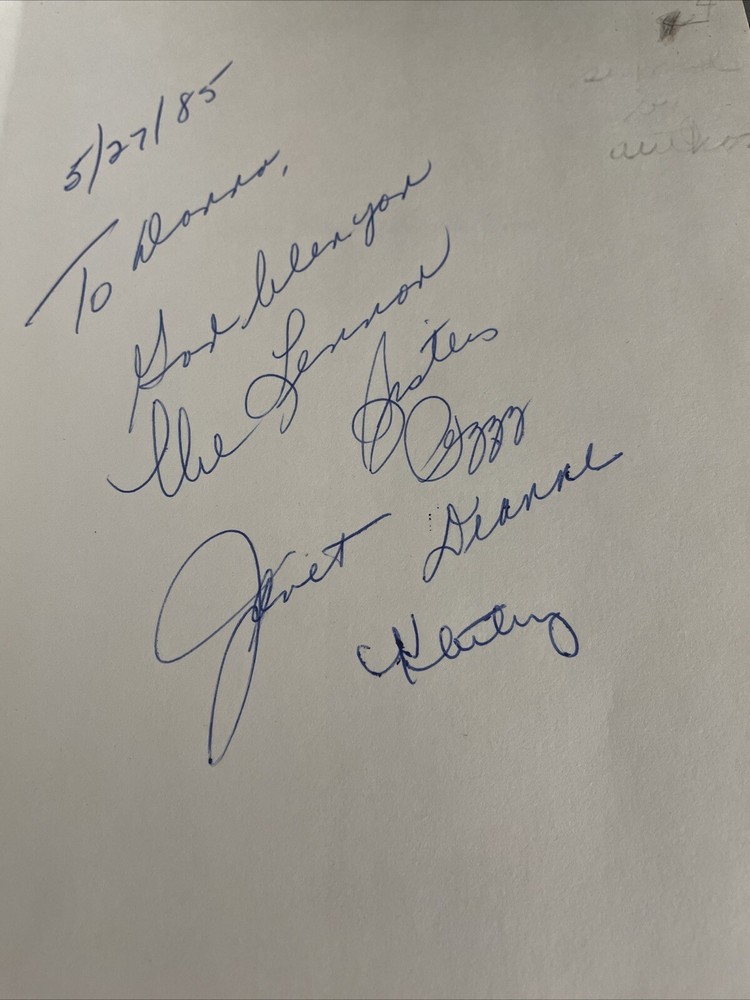 5/27/85
To Donna,
God bless you
the Lennon
Sisters
Peggy
Janet Dianne
Kathy
signed
by
author